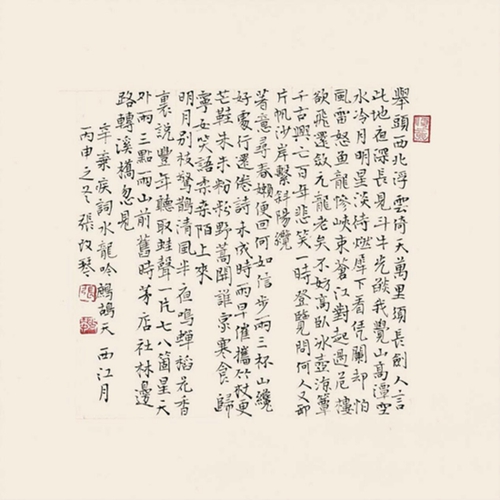 舉頭西北浮雲倚天萬里須長劍人言
此地夜深長見斗牛光燄我覺山高潭空
水冷月明星淡待燃犀下看凭闌却怕
風雷怒魚龍慘峽束蒼江對起過危樓
欲飛還斂元龍老矣不妨高臥冰壺涼簟
千古興亡百年悲笑一時登覽問何人又卸
片帆沙岸繫斜陽纜
著意尋春懶便回何如信步兩三杯山纔
好處行還倦詩未成時雨早催攜竹杖更
芒鞋朱朱粉粉野蒿開誰家寒食歸
寧女笑語柔桑陌上來
明月別枝驚鵲清風半夜鳴蟬稻花香
裏說豐年聽取蛙聲一片七八箇星天
外兩三點雨山前舊時茅店社林邊
路轉溪橋忽見
辛棄疾詞水龍吟 鷓鴣天 西江月
丙申之冬 張改琴